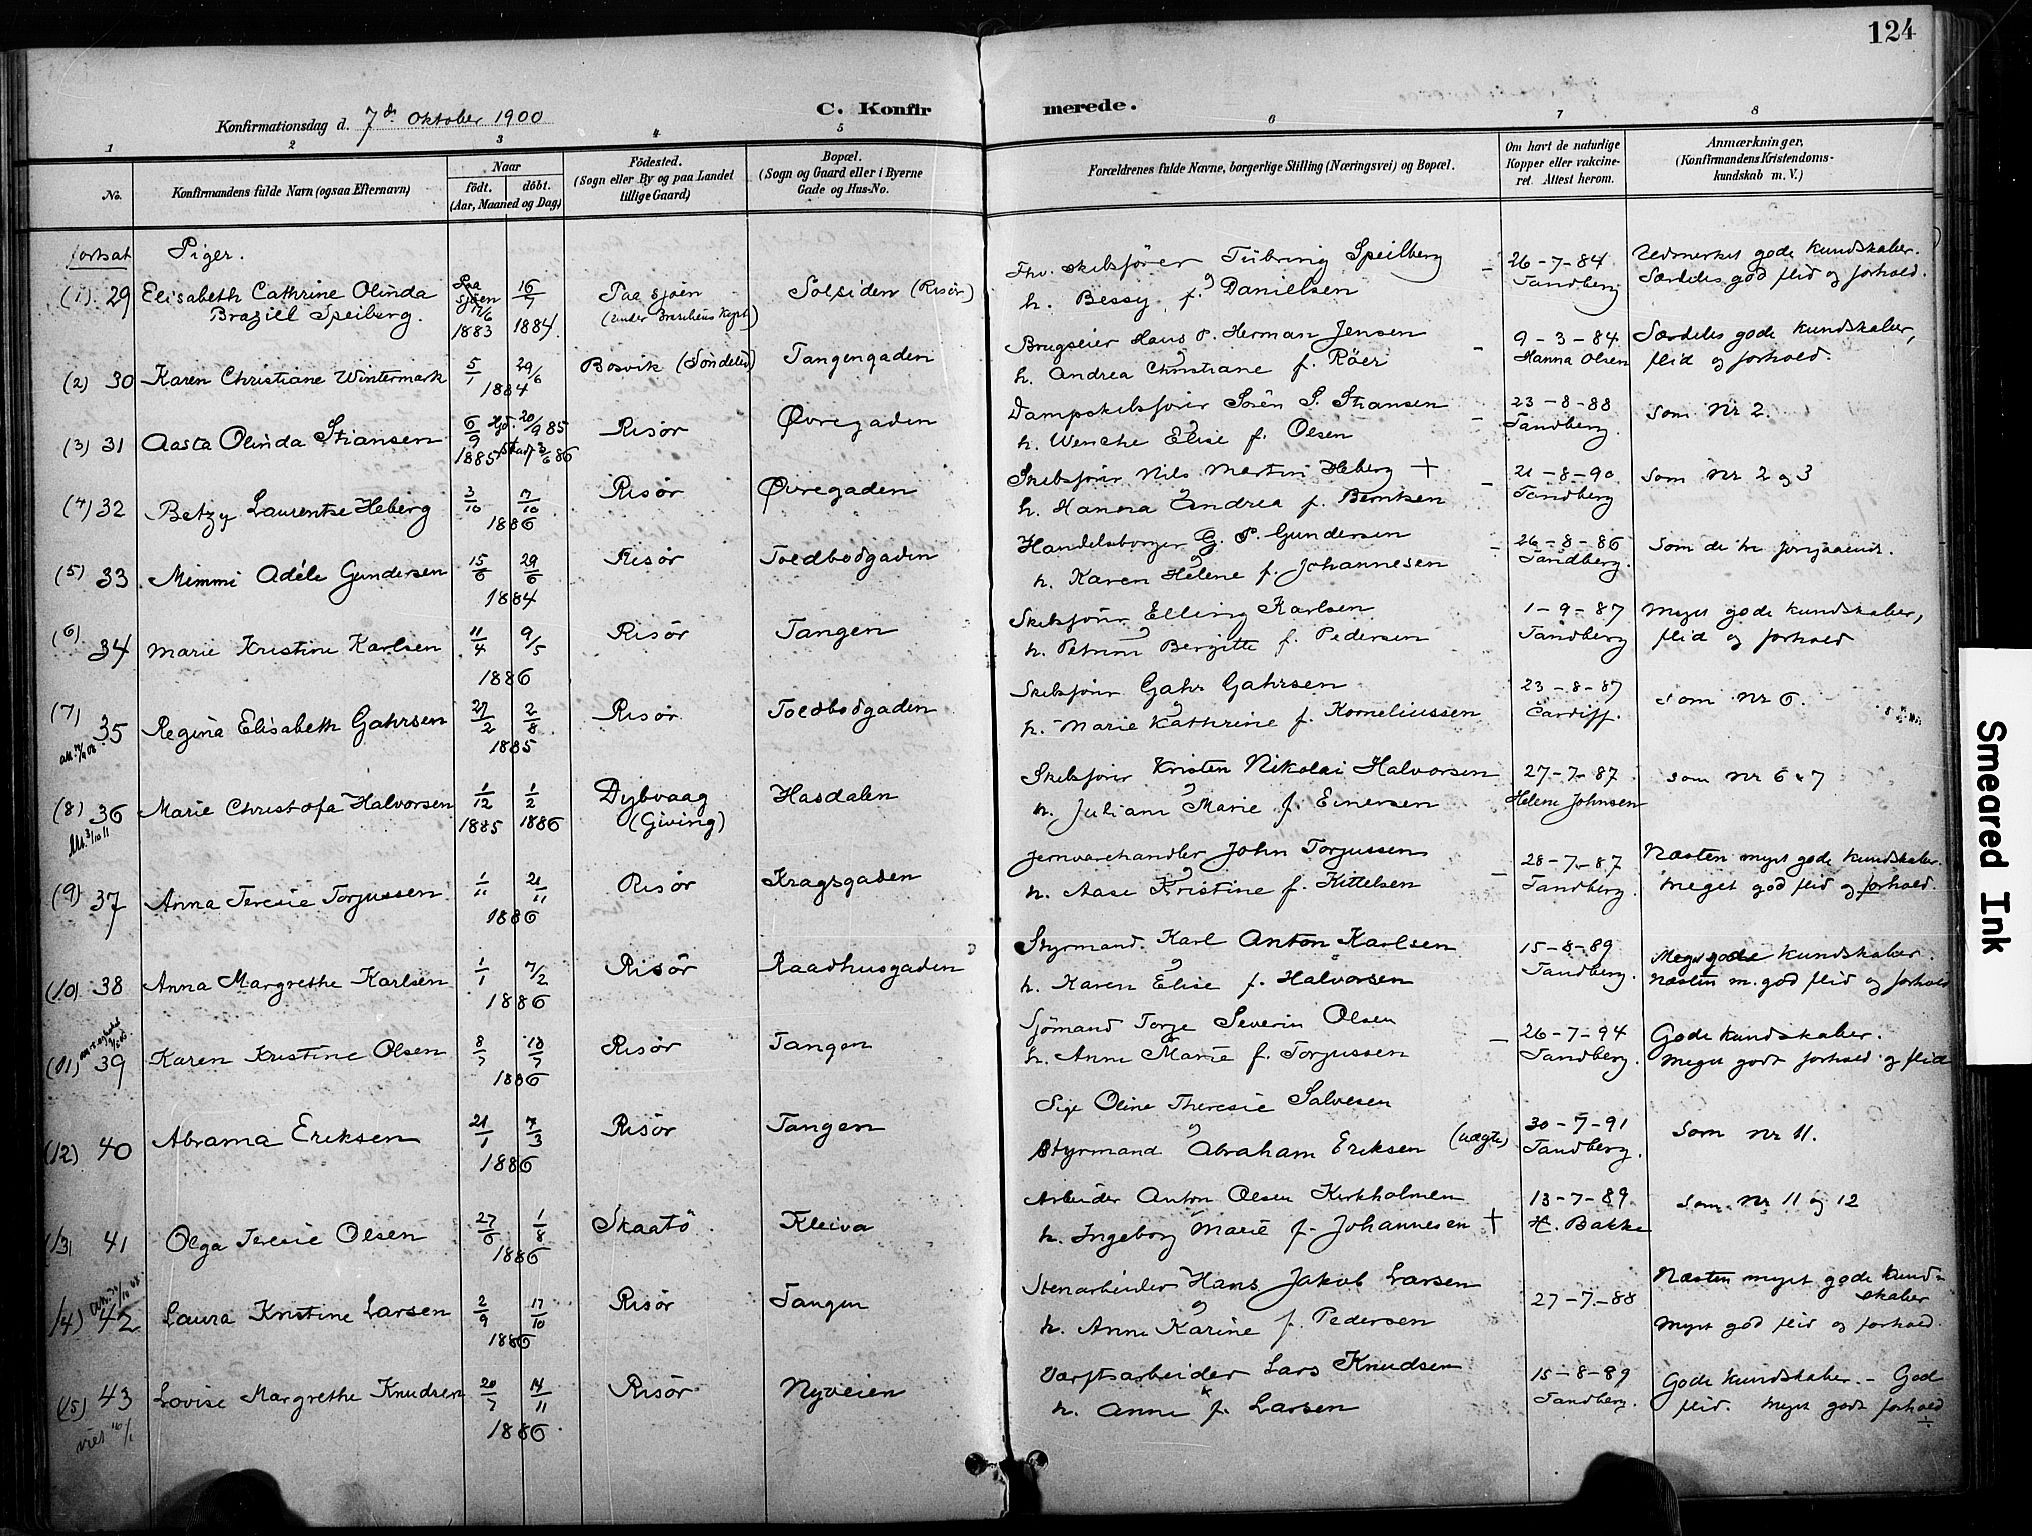 124
Konfirmationsdag d. 7de Oktober 1900
C. Konfirmerede.
1 2 3 4 5 6 7 8
No.
Konfirmandens fulde Navn (ogsaa Efternavn)
Naar
födt. döbt.
(Aar, Maaned og Dag)
Födested.
(Sogn eller By og paa Landet
tillige Gaard)
Bopæl.
(Sogn og Gaard eller i Byerne
Gade og Hus-No.
Forældrenes fulde Navne, borgerlige Stilling (Næringsvei) og Bopæl.
Om havt de naturlige
Kopper eller vakcine-
ret. Attest herom.
Anmærkninger,
(Konfirmandens Kristendoms-
kundskab m. V.)
fortsat Piger.
(1) 29 Elisabeth Cathrine Olinda
Brazill Speiberg.
Paa
Sjøen
1883 1884
Paa sjøen
Solsiden (Risør)
Fhv. skibsfører Tübring Speilberg
og
h. Bessy f. Danielsen
26-7-84
Tandberg
Udmerket gode kundskaber.
Særdeles god flid og forhold.
(2) 30 Karen Christiane Wintermark
5/1 29/6
1884
Bosvik (Søndeled)
Tangengaden
Brugseier Hans P. Herman Jensen
og
h. Andrea Christiane f. Röer
9-3-84
Hanna Olsen
Særdeles gode kundskaber,
flid og forhold.
(3) 31 Aasta Olinda Stiansen
6/9 Hjd. 20/9 85
1885 Stad. 3/6 86
Risør
Øvregaden
Dampskibsfører Sørèn S. Stiansen
og
h. Wenche Elise f. Olsen
23-8-88
Tandberg.
Som Nr 2.
(4) 32 Betzy Laurentse Heberg
3/10 17/10
1886
Risør
Øvregaden
Skibsfører Nils Martin Heberg +
og
h. Hanna Andrea f. Berntsen
21-8-90
Tandberg
Som Nr 2 og 3
(5) 33 Mimmi Adéle Gundersen
15/6 29/6
1884
Risør
Toldbodgaden
Handelsborger G. P. Gundersen
og
h. Karen Helene f. Johannesen
26-8-86
Tandberg.
Som de tre foregaaende.
(6) 34 Marie Kristine Karlsen
11/4 9/5
1886
Risør
Tangen
Skibsfører Elling Karlsen
og
h. Petrine Bergitte f. Pedersen
1-9-87
Tandberg
Meget gode kundskaber,
flid og forhold
(7) 35 Regina Elisabeth Gahrsen
27/2 2/8
1885
Risør
Toldbodgaden
Skibsfører Gahr Gahrsen
og
h. Marie Kathrine f. Korneliussen
23-8-87
Cardiff.
Som Nr 6.
(8) 36 Marie Christofa Halvorsen
Att. 3/10 11
1/12 1/2
1885 1886
Dybvaag
(Giving)
Hasdalen
Skibsfører Kristen Nikolai Halvorsen
og
h. Juliane Marie f. Einersen
27-7-87
Helene Johnsen
Som Nr 6 & 7
(9) 37 Anna Teresie Torjussen
1/11 21/11
1886
Risør
Kragsgaden
Jernvarehandler John Torjussen
og
h. Aase Kristine f. Kittelsen
28-7-87
Tandberg.
Næsten meget gode kundskaber.
Meget god flid og forhold.
(10) 38 Anna Margrethe Karlsen
1/1 7/2
1886
Risør
Raadhusgaden
Styrmand Karl Anton Karlsen
og
h. Karen Elise f. Halvorsen
15-8-89
Tandberg.
Meget gode kundskaber.
Næsten m. god flid og forhold
(11) 39 Karen Kristine Olsen
8/7 18/7
1886
Risør
Tangen
Sjömand Torje Severin Olsen
og
h. Anne Marie f. Torjussen
26-7-94
Tandberg.
Gode kundskaber.
Meget godt forhold og flid
(12) 40 Abrama Eriksen
21/1 7/3
1886
Risør
Tangen
Pige Oline Theresie Salvesen
og
Styrmand Abraham Eriksen (uægte)
30-7-91
Tandberg.
Som nr 11.
(13) 41 Olga Teresie Olsen
27/6 1/8
1886
Skaatö
Kleiva
Arbeider Anton Olsen Kirkholmen
og
h. Ingeborg Marie f. Johannesen +
13-7-89
H. Bakke
Som Nr 11 og 12
(14) 42 Laura Kristine Larsen
2/9 17/10
1886
Risør
Tangen
Stenarbeider Hans Jakob Larsen
og
h. Anne Karine f. Pedersen
27-7-88
Næsten meget gode kund-
skaber
Meget god flid og forhold.
(15) 43 Lovise Margrethe Knudsen
20/7 14/11
1886
Risør
Nyveien
Værftsarbeider Lars Knudsen
h. Anne f. Larsen
15-8-89
Tandberg.
Gode kundskaber. - God
flid. Meget godt forhold
Smeared Ink